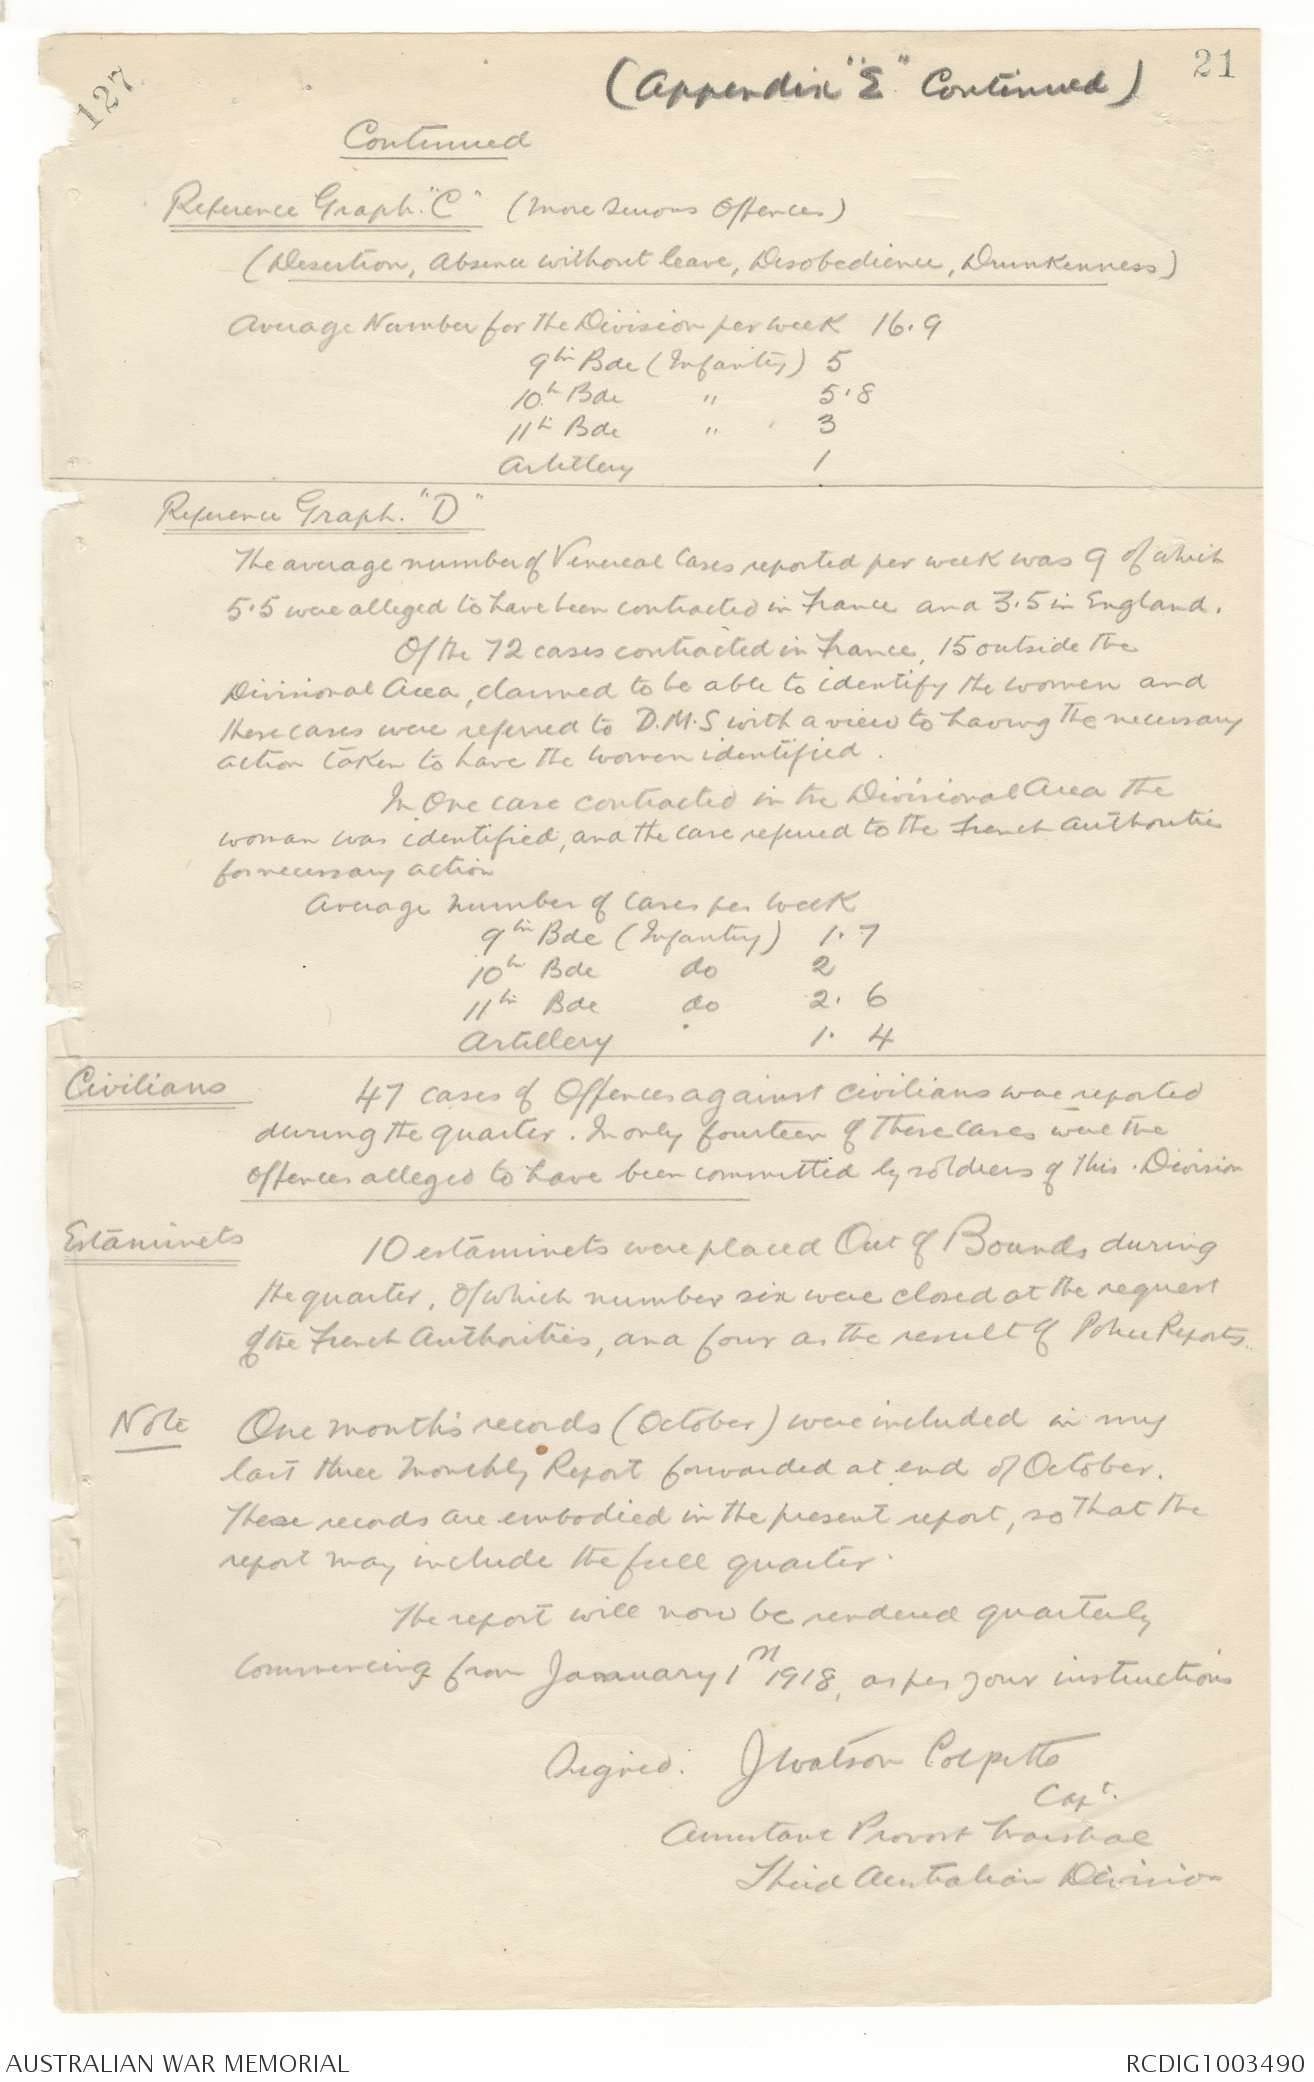 127
(Appendix "E" Continued)
21
Continued
Reference Graph. "C" (More Serious Offences)
(Desertion, Absence without leave, Disobedience, Drunkenness)
Average Number for the Division per week 16.9
9th Bde (Infantry) 5
10th Bde " 5.8
11th Bde " 3
Artillery 1
Reference Graph. "D"
The average number of Venereal Cases reported per week was 9 of which
5.5 were alleged to have been contracted in France and 3.5 in England.
Of the 72 cases contracted in France, 15 outside the
Divisional Area, claimed to be able to identify the women and
these cases were referred to D.M.S with a view to having the necessary
action taken to have the women identified.
In one case contracted in the Divisional Area the
woman was identified, and the case referred to the French Authorities
for necessary action
Average number of cases per week
9th Bde (Infantry) 1.7
10th Bde do 2
11th Bde do 2.6
Artillery 1.4
Civilians 47 cases of Offences against civilians were reported
during the quarter. In only fourteen of these cases were the
offences alleged to have been committed by soldiers of this Division
Estaminets 10 estaminets were placed Out of Bounds during
the quarter, of which number six were closed at the request
of the French Authorities, and four as the result of Police Reports.
Note One month's records (October) were included in my
last three monthly Report forwarded at end of October.
These records are embodied in the present report, so that the
report may include the full quarter.
The report will now be rendered quarterly
commencing from January 1st 1918, as per your instructions
Signed. J Watson Colpitts
Capt.
Assistant Provost Marshal
Third Australian Division
AUSTRALIAN WAR MEMORIAL
RCDIG1003490